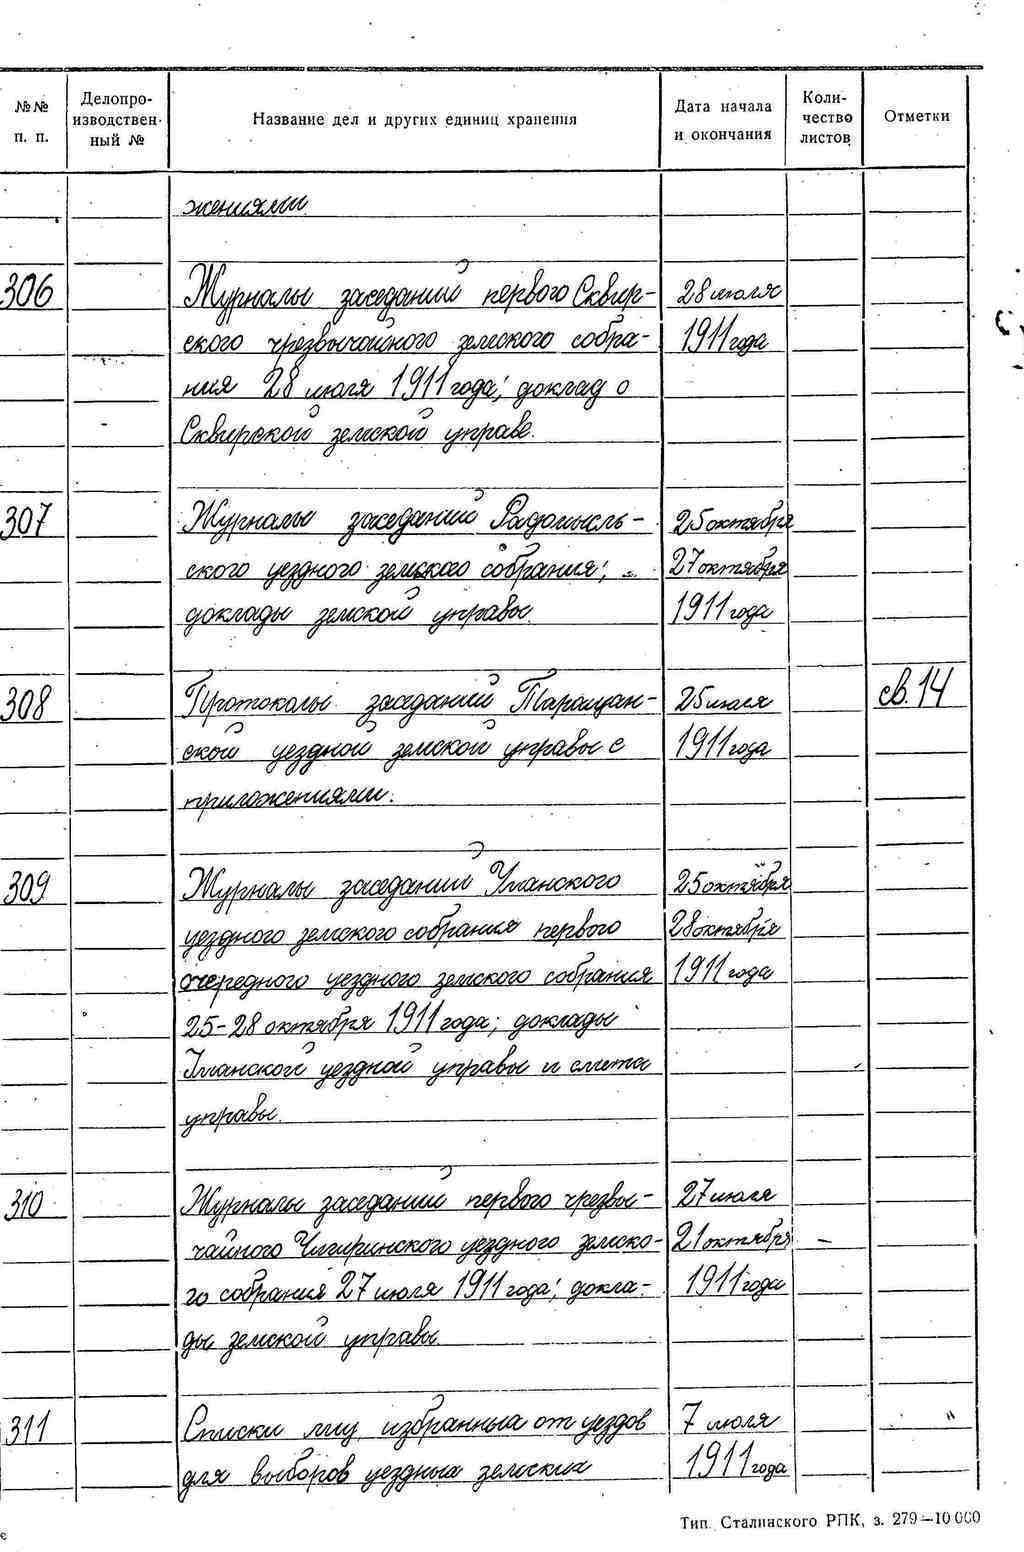 №№ п. п. Делопроизводственный № Название дел и других единиц хранения Дата начала и окончания Количество листов Отметки
жениями
306 Журналы заседаний первого Сквир- 28 июля
ского чрезвычайного земского собра- 1911 года
ния 28 июля 1911 года; доклад о
Сквирской земской управе.
307 Журналы заседаний Радомысль- 25 октября
ского уездного земского собрания; 27 октября
доклады земской управы. 1911 года
308 Протоколы заседаний Таращан- 25 июля св. 14
ской уездной земской управы с 1911 года
приложениями.
309 Журналы заседаний Уманского 25 октября
уездного земского собрания первого 28 октября
очередного уездного земского собрания 1911 года
25-28 октября 1911 года; доклады
Уманской уездной управы и смета
управы.
310 Журналы заседаний первого чрезвы- 27 июля
чайного Чигиринского уездного земско- 21 октября
го собрания 27 июля 1911 года; докла- 1911 года
ды земской управы.
311 Списки лиц, избранных от уездов 7 июля
для выборов уездных земских 1911 года
Тип. Сталинского РПК, з. 279—10 000